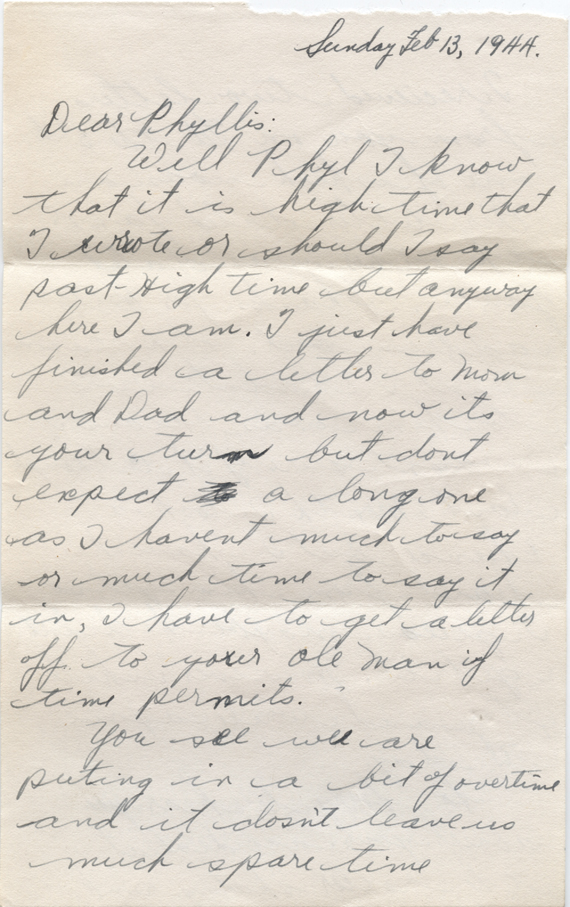 Sunday Feb 13, 1944.
Dear Phyllis:
Well Phyl I know
that it is high time that
I wrote or should I say
past-High time but anyway
here I am. I just have
finished a letter to Mom
and Dad and now its
your turn but dont
expect a long one
as I havent much to say
or much time to say it
in, I have to get a letter
off to your ole man if
time permits.
You see we are
puting in a bit of overtime
and it dosn't leave us
much spare time